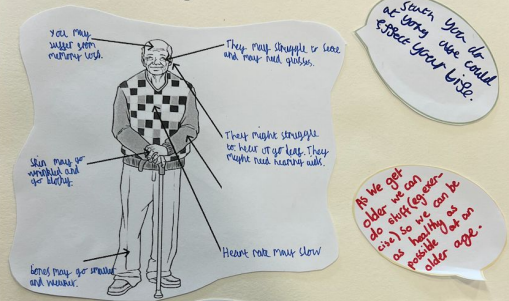 You may
suffer from
memory loss.
They may struggle to see
and may need glasses.
They might struggle
to hear or go deaf. They
might need hearing aids.
Skin may go
wrinkled and
go blotchy.
Heart rate may slow
Bones may go smaller
and weaker.
Stuff you do
at young age could
effect your life.
As we get
older we can
do stuff (eg. exer-
cise) so we can be
as healthy as
possible at an
older age.